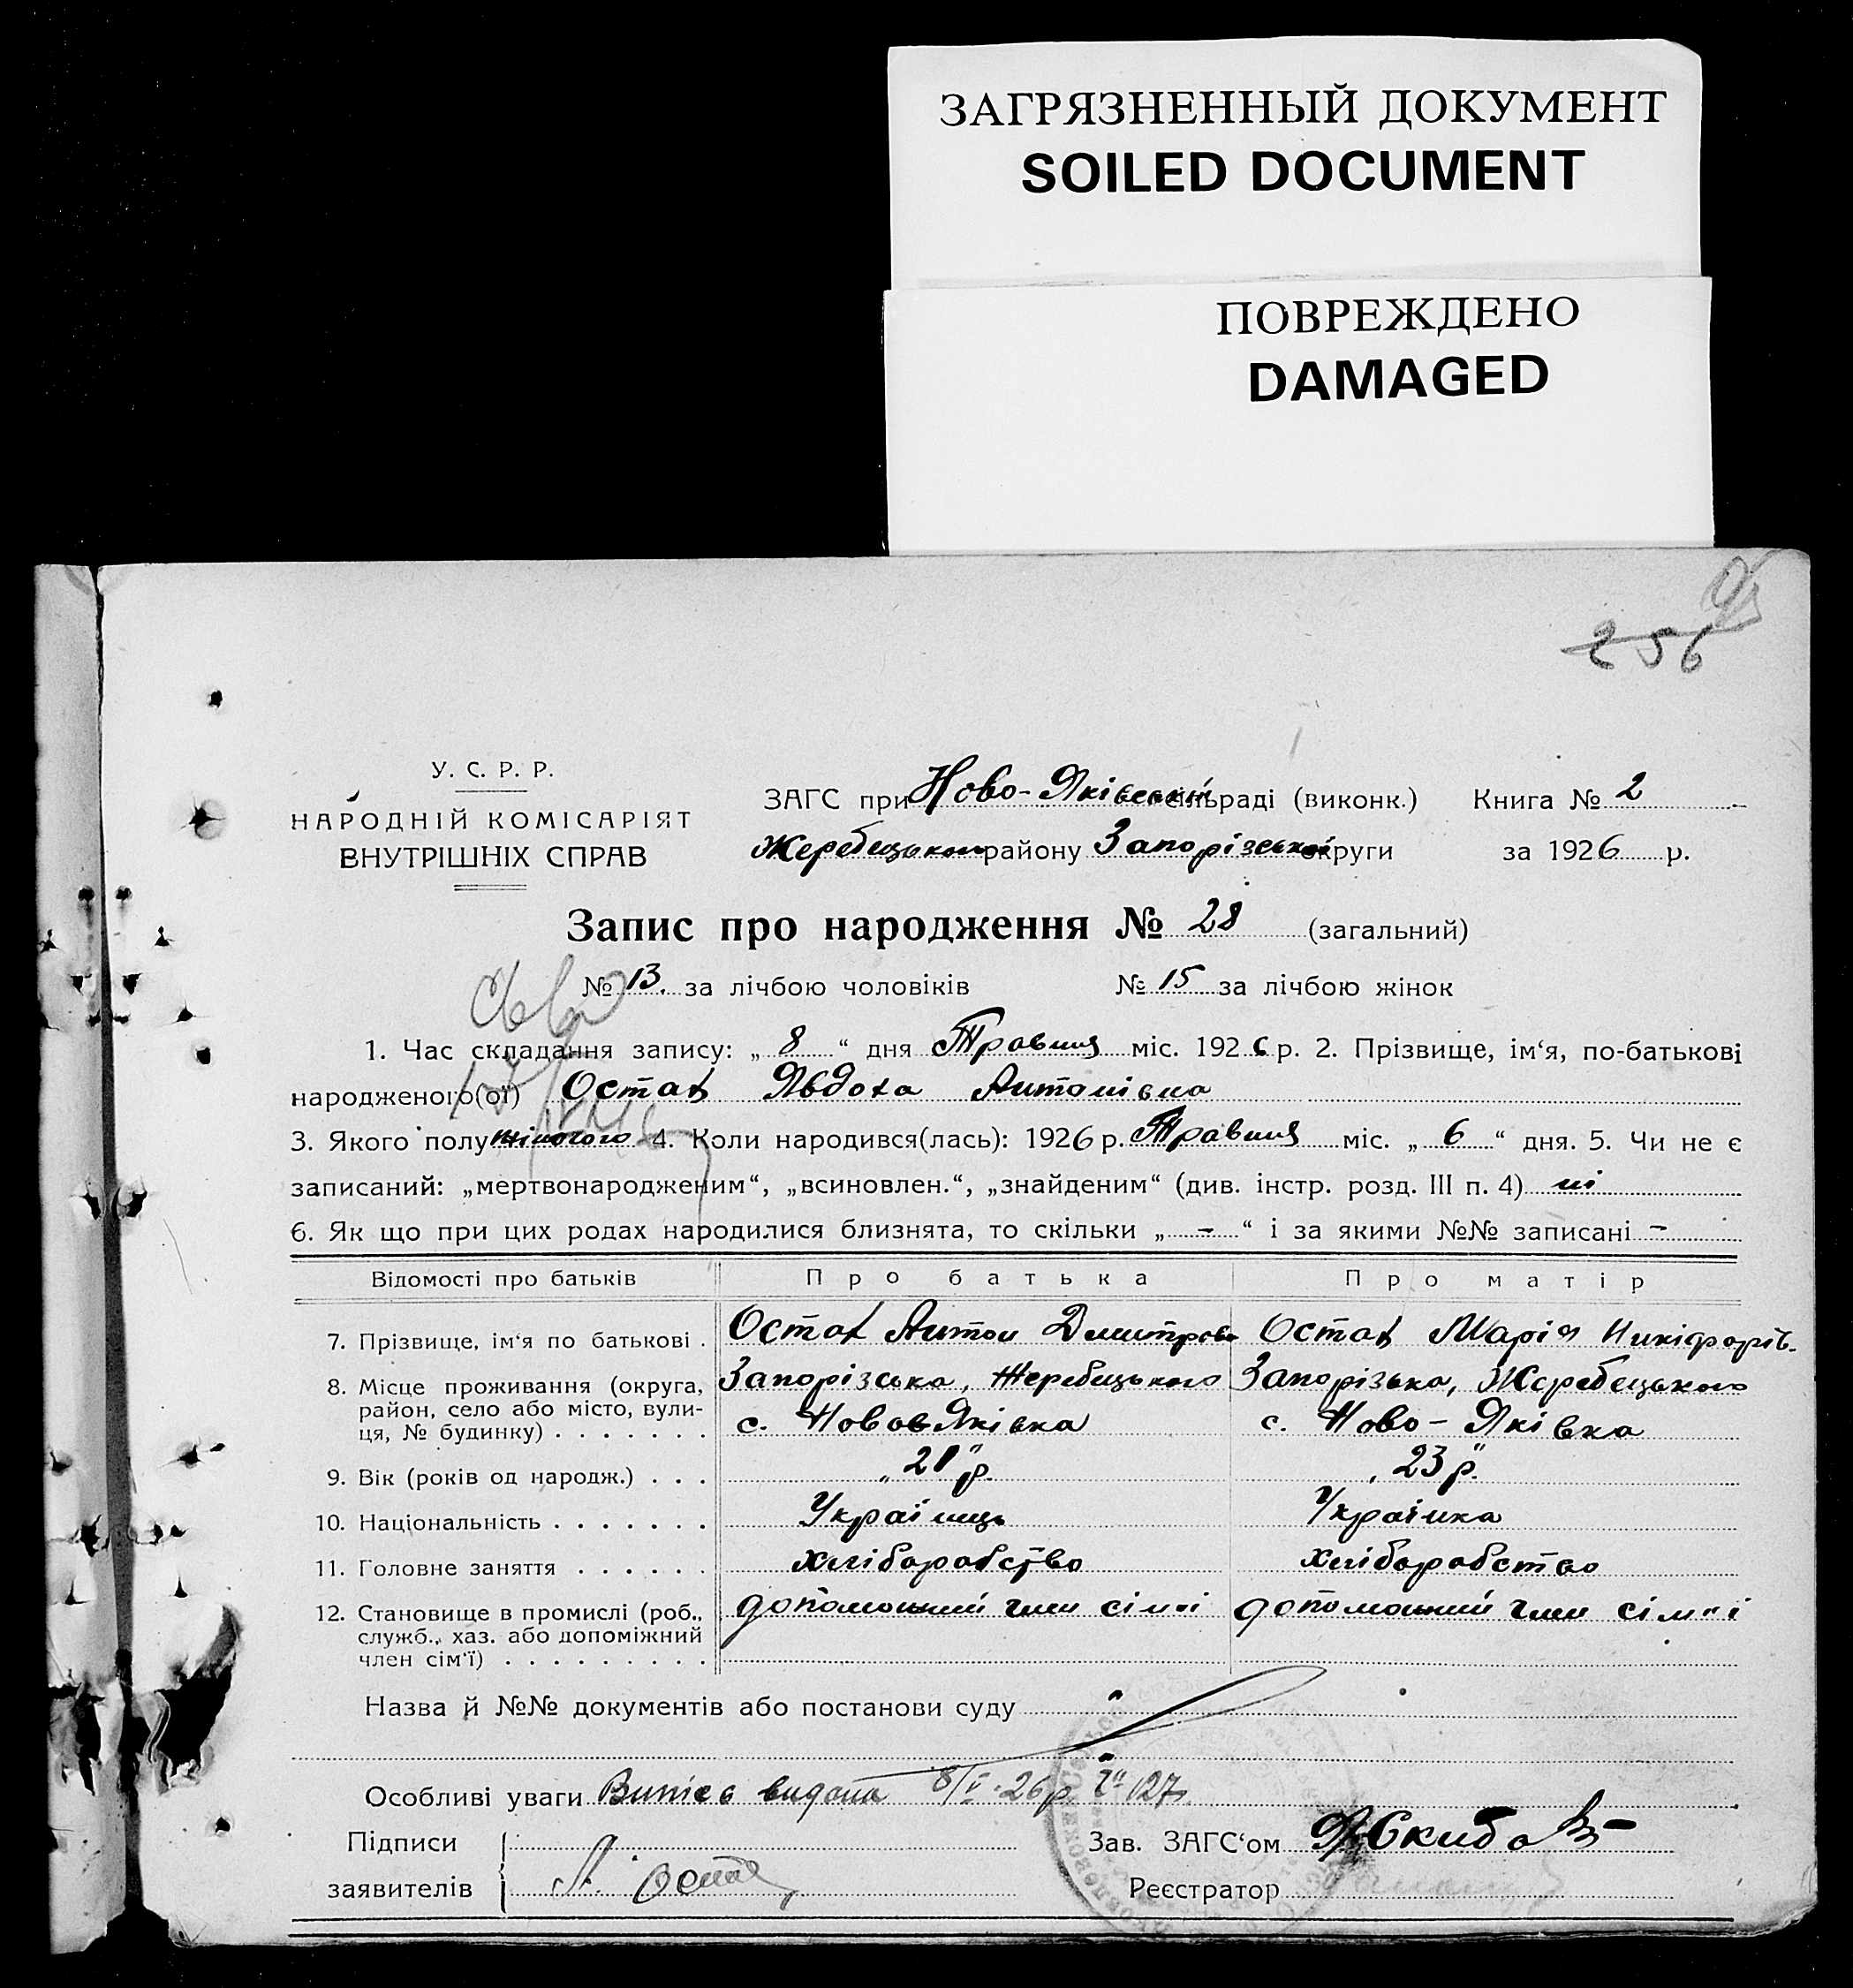 ЗАГРЯЗНЕННЫЙ ДОКУМЕНТ
SOILED DOCUMENT
ПОВРЕЖДЕНО
DAMAGED
256
У. С. Р. Р.
НАРОДНІЙ КОМІСАРІЯТ
ВНУТРІШНІХ СПРАВ
ЗАГС при Ново-Яківській сільраді (виконк.) Книга № 2
Жеребецького району Запорізської округи за 1926 р.
Запис про народження № 28 (загальний)
№ 13. за лічбою чоловіків № 15 за лічбою жінок
1. Час складання запису: „ 8 “ дня Травня міс. 1926 р. 2. Прізвище, ім‘я, по-батькові
народженого(ої) Остах Явдоха Антонівна
3. Якого полу жіночого 4. Коли народився(лась): 1926 р. Травня міс. „ 6 “ дня. 5. Чи не є
записаний: „мертвонародженим“, „всиновлен.“, „знайденим“ (див. інстр. розд. III п. 4) ні
6. Як що при цих родах народилися близнята, то скільки „ – “ і за якими №№ записані –
Відомості про батьків Про батька Про матір
7. Прізвище, ім‘я по батькові . Остах Антон Дмитров Остах Марія Никіфорів.
8. Місце проживання (округа, Запорізська, Жеребецького Запорізька, Жеребецького
район, село або місто, вули-
ця, № будинку) . . . . . . . с. Новов Яківка с. Ново-Яківка
9. Вік (років од народж.) . . . „21“ р. „23“ р.
10. Національність . . . . . . . Українець Українка
11. Головне заняття . . . . . . хліборобство хліборобство
12. Становище в промислі (роб., допоможний член сім'ї допоможний член сім'ї
служб., хаз. або допоміжний
член сім‘ї) . . . . . . . . .
Назва й №№ документів або постанови суду
Особливі уваги Випись видана 8/V-26р. 127
Підписи Зав. ЗАГС‘ом Скиба
заявителів А. Остах Реєстратор